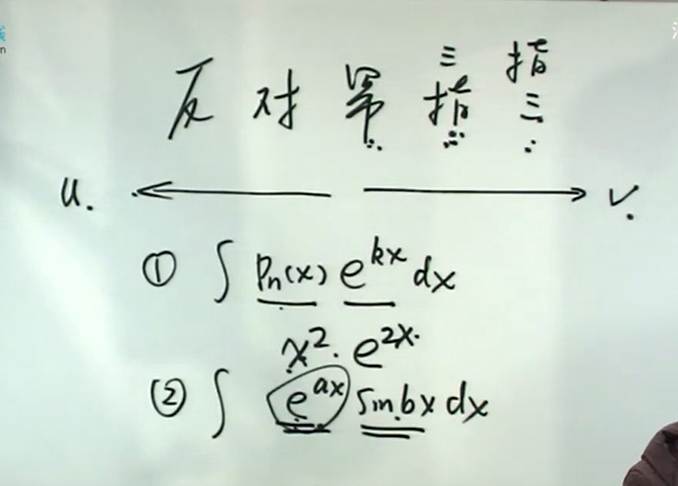 三 指
反 对 幂 指 三
u. v.
① ∫ Pn(x) e^{kx} dx
x². e^{2x}.
② ∫ e^{ax} sin bx dx